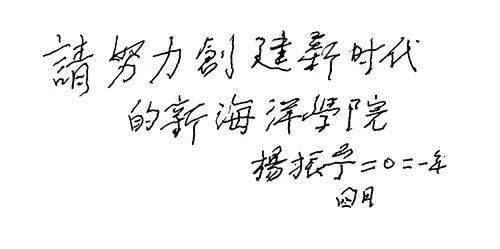 請努力創建新时代
的新海洋學院
楊振寧二〇二一年
四月